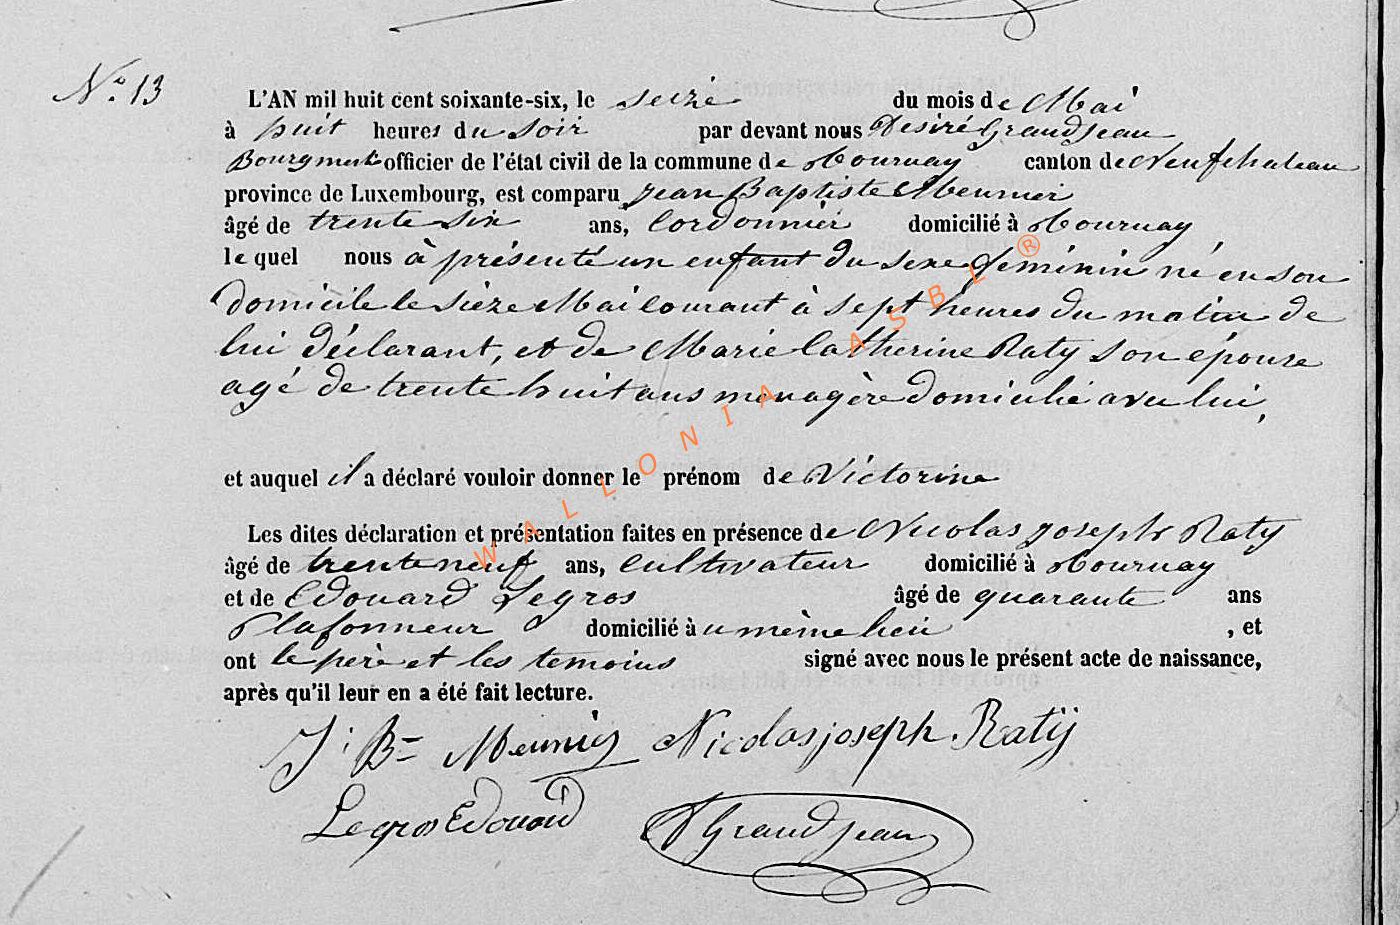 N° 13
L'AN mil huit cent soixante-six, le seize du mois de Mai
à huit heures du soir par devant nous Desiré Grandjean
Bourgmestre officier de l'état civil de la commune de Tournay canton de Neufchateau
province de Luxembourg, est comparu Jean Baptiste Meunier
âgé de trente six ans, Cordonnier domicilié à Tournay
le quel nous à présenté un enfant du sexe feminin né en son
domicile le sieze Mai courant à sept heures du matin de
lui déclarant, et de Marie Catherine Raty son épouse
agé de trente huit ans menagère domicilié avec lui,
et auquel il a déclaré vouloir donner le prénom de Victorine
Les dites déclaration et présentation faites en présence de Nicolas Joseph Raty
âgé de trente neuf ans, cultivateur domicilié à Tournay
et de Edouard Legros âgé de quarante ans
Plafonneur domicilié à u même lieu , et
ont le père et les temoins signé avec nous le présent acte de naissance,
après qu'il leur en a été fait lecture.
J. Bte Meunier Nicolas joseph Ratij
Legros Edouard DGrandjean
WALLONIA ASBL ®